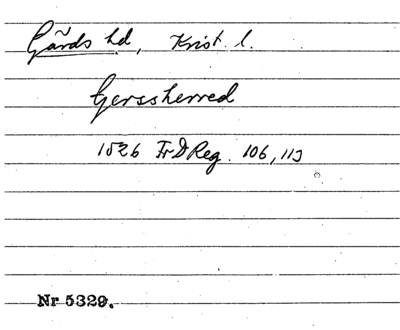 Gärds hd, Krist. l.
Gerssherred
1526 FrDReg. 106, 113
Nr 5329.